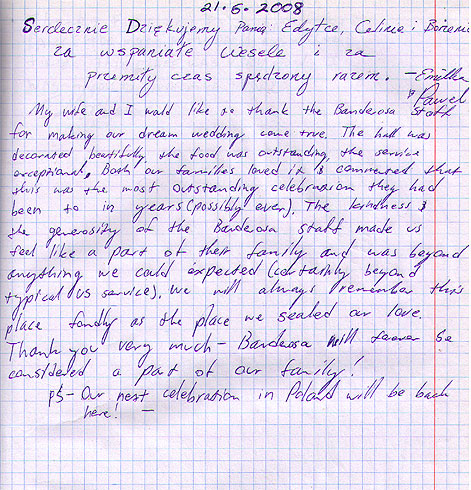 21.6.2008
Serdecznie Dziękujemy Panią Edytce, Celinie i Bożenie
za wspaniałe wesele i za
przemiły czas spędzony razem. – Emilka
& Paweł
My wife and I wald like to thank the Banderosa Staff
for making our dream wedding come true. The hall was
decorated beutifully, the food was outstanding, the service
exceptional, Both our families loved it & commented that
this was the most outstanding celebration they had
been to in years (possibly ever). The kindness &
the generosity of the Banderosa staff made us
feel like a part of their family and was beyond
anything we could expected (certainly beyond
typical US service). We will always remember this
place fondly as the place we sealed our love.
Thank you very much – Banderosa will forever be
considered a part of our family!
PS – Our next celebration in Poland will be back
here! –